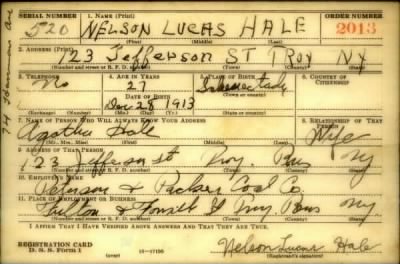 SERIAL NUMBER 1. NAME (Print) ORDER NUMBER
520 NELSON LUCAS HALE 2013
(First) (Middle) (Last)
2. ADDRESS (Print)
23 Jefferson ST TROY NY
(Number and street or R. F. D. number) (Town) (County) (State)
3. TELEPHONE 4. AGE IN YEARS 5. PLACE OF BIRTH 6. COUNTRY OF CITIZENSHIP
No 27 Schenectady
DATE OF BIRTH (Town or county)
Dec 28 1913
(Exchange) (Number) (Mo.) (Day) (Yr.) (State or country)
7. NAME OF PERSON WHO WILL ALWAYS KNOW YOUR ADDRESS 8. RELATIONSHIP OF THAT PERSON
Agatha Hale Wife
(Mr., Mrs., Miss) (First) (Middle) (Last)
9. ADDRESS OF THAT PERSON
23 Jefferson st Troy. Rens NY
(Number and street or R. F. D. number) (Town) (County) (State)
10. EMPLOYER'S NAME
Peterson & Packer Coal Co.
11. PLACE OF EMPLOYMENT OR BUSINESS
Fulton & Troy Rens NY
(Number and street or R. F. D. number) (Town) (County) (State)
I AFFIRM THAT I HAVE VERIFIED ABOVE ANSWERS AND THAT THEY ARE TRUE.
REGISTRATION CARD
D. S. S. Form 1 (over) 16—17105 Nelson Lucas Hale
(Registrant's signature)